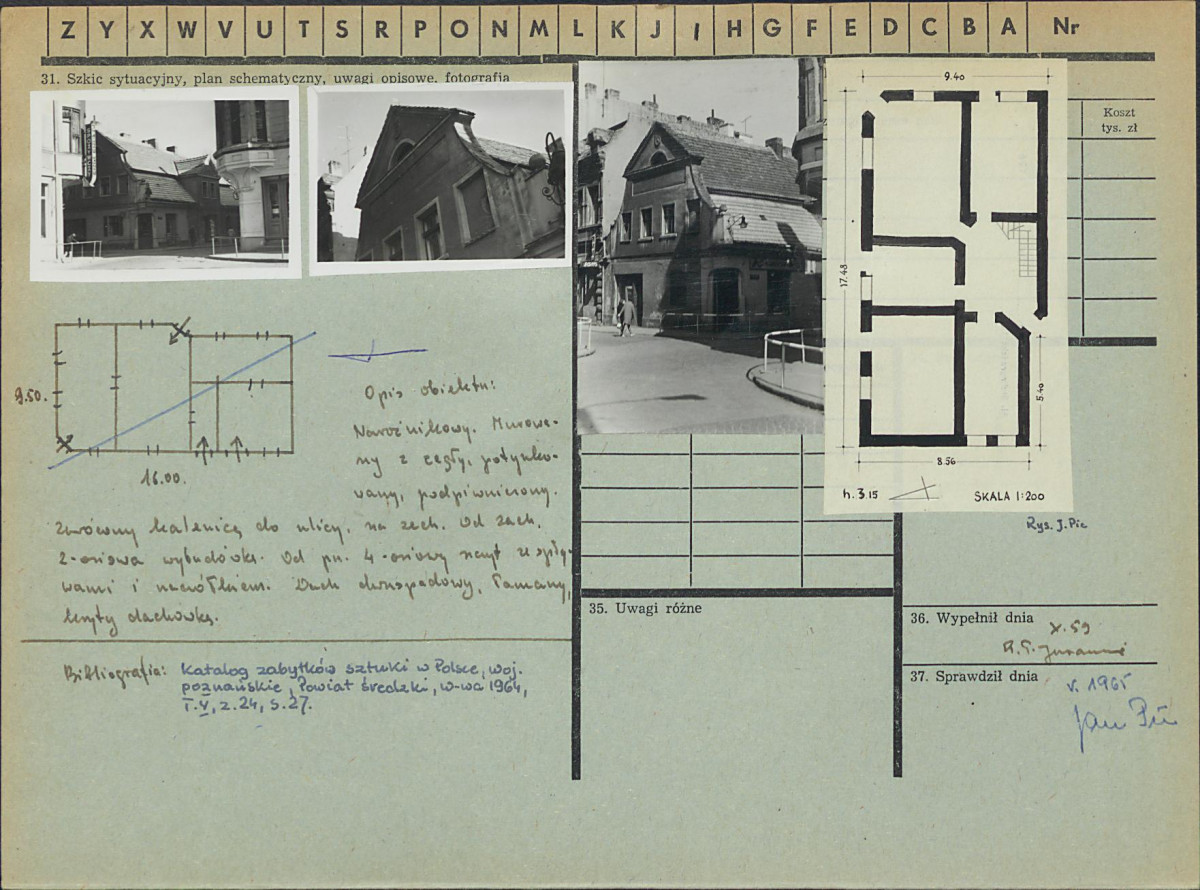 Z Y X W V U T S R P O N M L K J I H G F E D C B A Nr
31. Szkic sytuacyjny, plan schematyczny, uwagi opisowe, fotografia
Koszt
tys. zł
9.40
17.48
5.40
8.56
h. 3.15 SKALA 1:200
Rys. J. Pic
9.50.
16.00.
Opis obiektu:
Narożnikowy. Murowa-
ny z cegły, potynko-
wany, podpiwniczony.
Zwrócony kalenicą do ulicy, na zach. Od zach.
2-osiowa wybudówka. Od pn. 4-osiowy szczyt ze spły-
wami i naczółkiem. Dach dwuspadowy, łamany,
kryty dachówką.
Bibliografia: Katalog zabytków sztuki w Polsce, woj.
poznańskie, Powiat średzki, W-wa 1964,
T.V, z.24, s.27.
35. Uwagi różne
36. Wypełnił dnia
X.59
37. Sprawdził dnia
V. 1965
Jan Pic